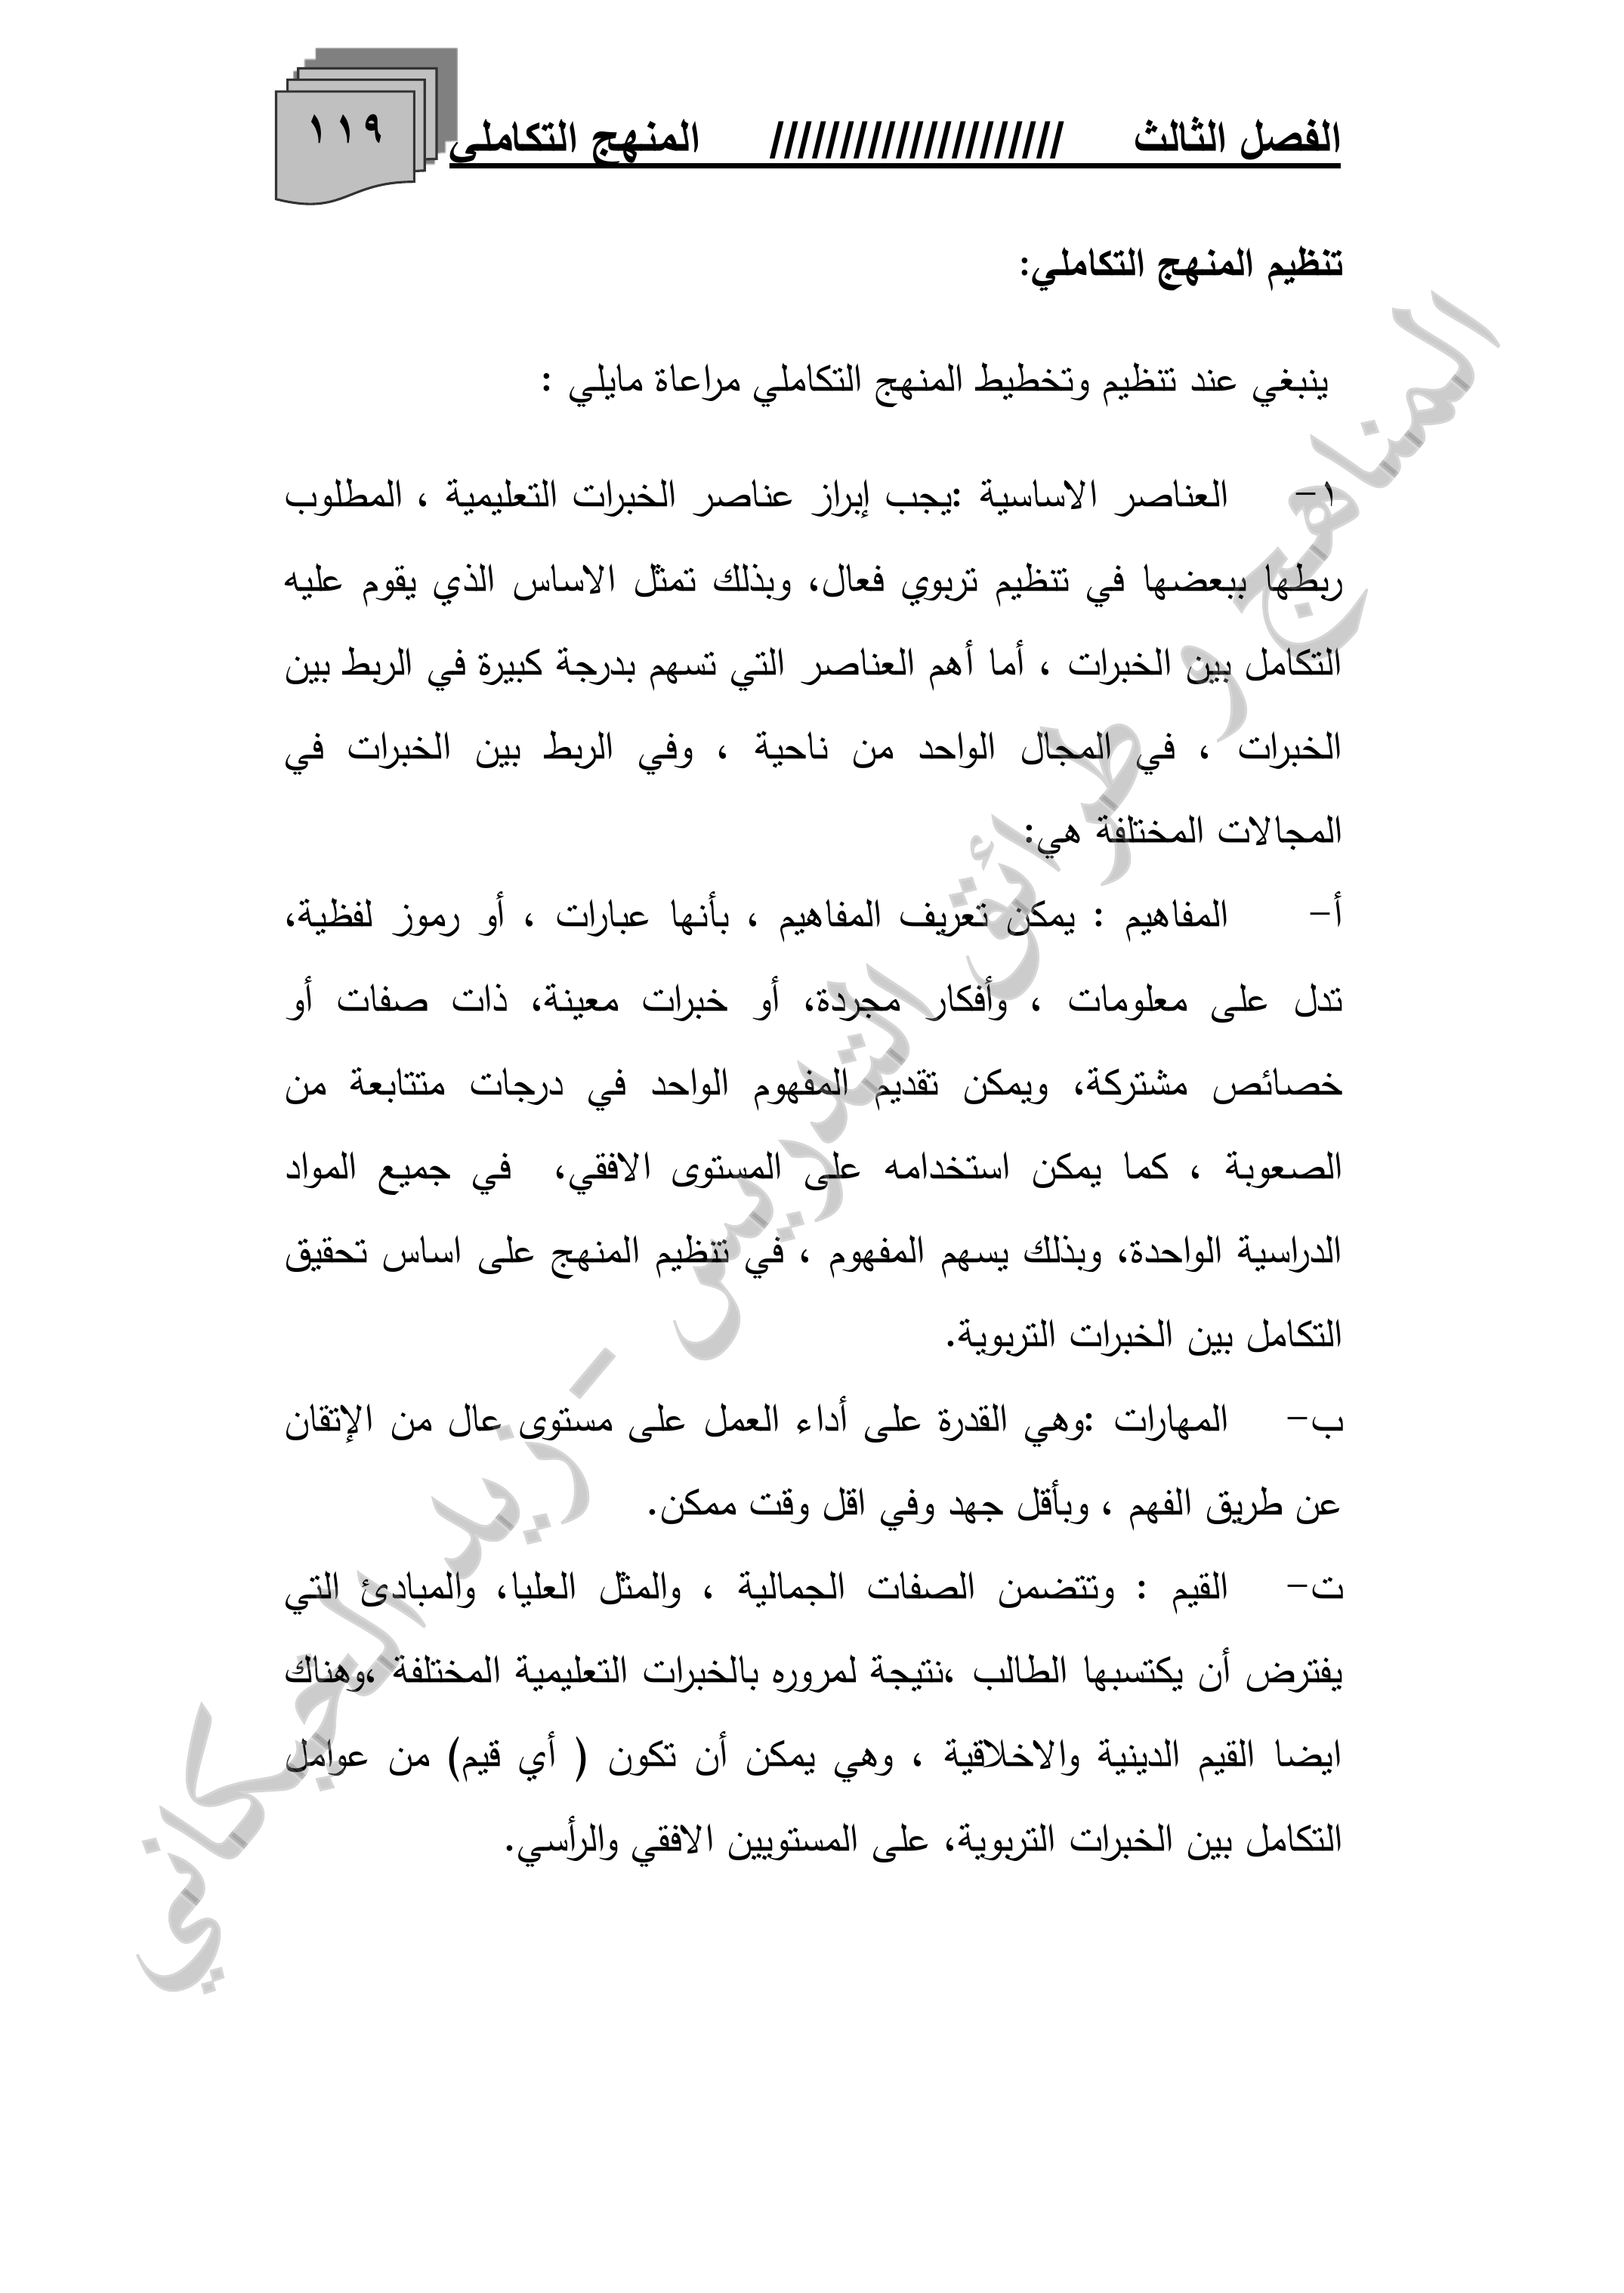 الفصل الثالث ///////////////////// المنهج التكاملي
١١٩
تنظيم المنهج التكاملي:
ينبغي عند تنظيم وتخطيط المنهج التكاملي مراعاة مايلي :
١- العناصر الاساسية :يجب إبراز عناصر الخبرات التعليمية ، المطلوب
ربطها ببعضها في تنظيم تربوي فعال، وبذلك تمثل الاساس الذي يقوم عليه
التكامل بين الخبرات ، أما أهم العناصر التي تسهم بدرجة كبيرة في الربط بين
الخبرات ، في المجال الواحد من ناحية ، وفي الربط بين الخبرات في
المجالات المختلفة هي:
أ- المفاهيم : يمكن تعريف المفاهيم ، بأنها عبارات ، أو رموز لفظية،
تدل على معلومات ، وأفكار مجردة، أو خبرات معينة، ذات صفات أو
خصائص مشتركة، ويمكن تقديم المفهوم الواحد في درجات متتابعة من
الصعوبة ، كما يمكن استخدامه على المستوى الافقي، في جميع المواد
الدراسية الواحدة، وبذلك يسهم المفهوم ، في تنظيم المنهج على اساس تحقيق
التكامل بين الخبرات التربوية.
ب- المهارات :وهي القدرة على أداء العمل على مستوى عال من الإتقان
عن طريق الفهم ، وبأقل جهد وفي اقل وقت ممكن.
ت- القيم : وتتضمن الصفات الجمالية ، والمثل العليا، والمبادئ التي
يفترض أن يكتسبها الطالب ،نتيجة لمروره بالخبرات التعليمية المختلفة ،وهناك
ايضا القيم الدينية والاخلاقية ، وهي يمكن أن تكون ( أي قيم) من عوامل
التكامل بين الخبرات التربوية، على المستويين الافقي والرأسي.
المناهج و طرائق التدريس - زيد الخيكاني